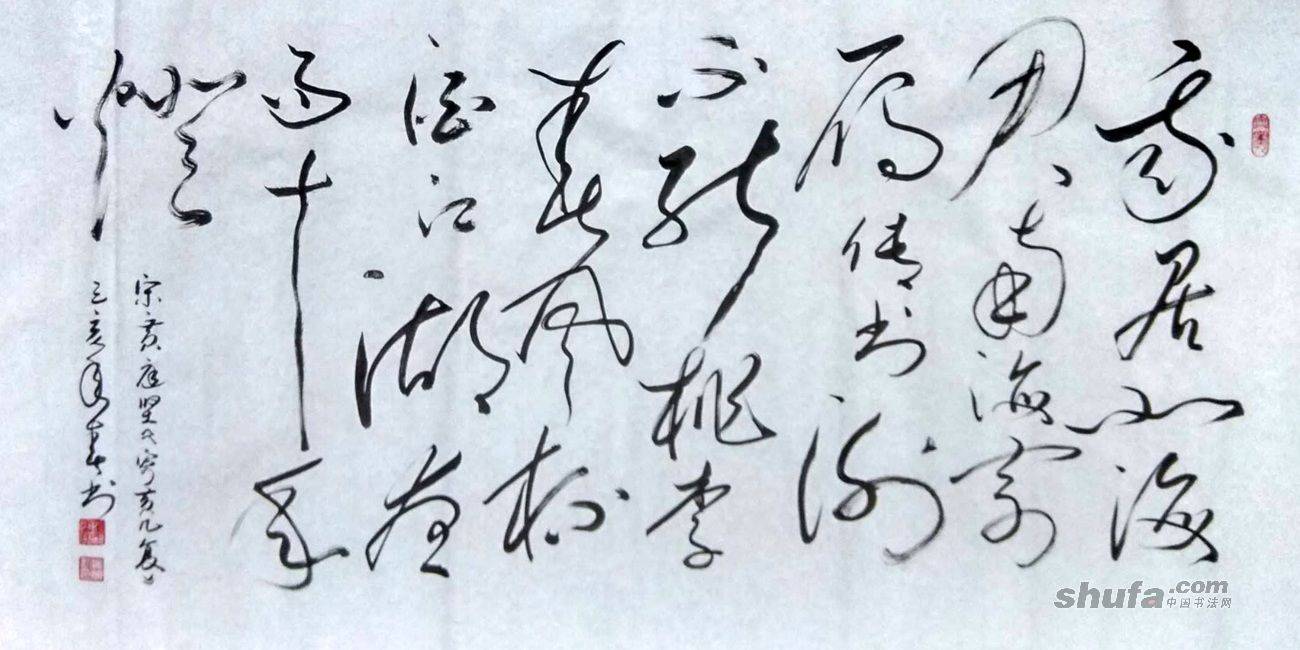 我居北海
君南海寄
雁传书谢
不能桃李
春风一杯
酒江湖夜
雨十年
燈
宋黄庭坚寄黄几复
己亥年春书
shufa.com
中国书法网